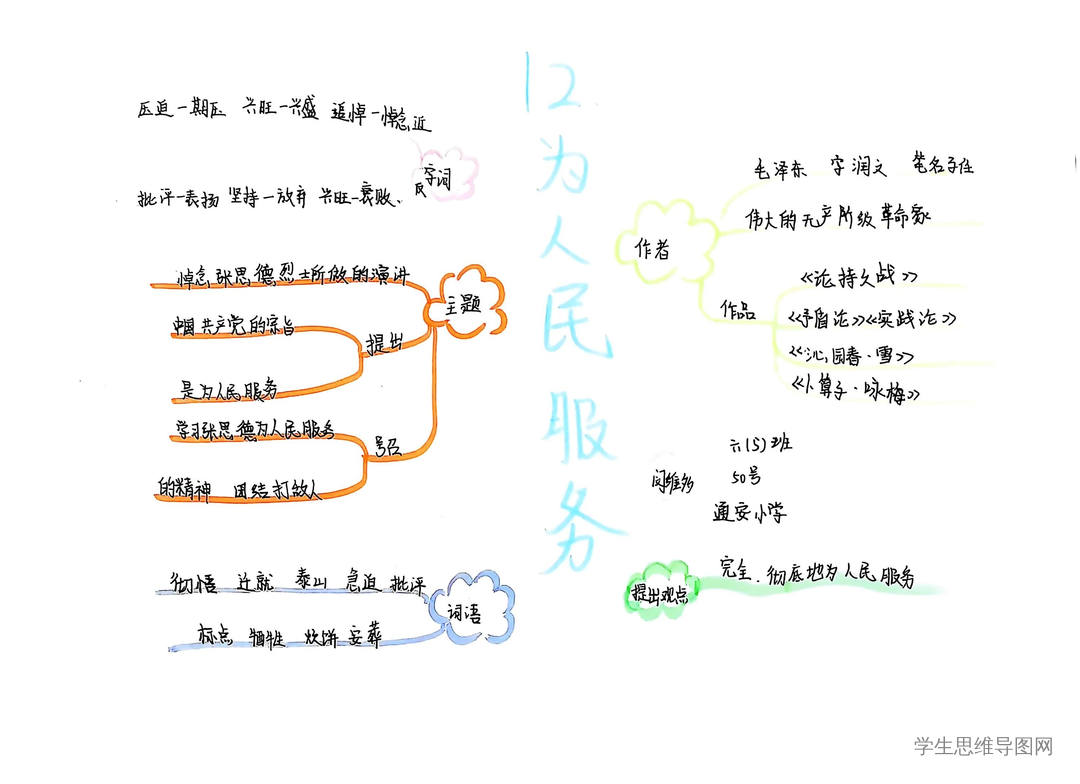 12 为人民服务
压迫—期压 兴旺—兴盛 追悼—悼念 近
字词
反
批评—表扬 坚持—放弃 兴旺—衰败、
主题
悼念张思德烈士所做的演讲
提出
中国共产党的宗旨
是为人民服务
号召
学习张思德为人民服务
的精神 团结打敌人
词语
彻悟 迁就 泰山 急迫 批评
标点 牺牲 炊饼 安葬
作者
毛泽东 字润文 笔名子任
伟大的无产阶级革命家
作品
《论持久战》
《矛盾论》《实战论》
《沁园春·雪》
《卜算子·咏梅》
六(5)班
50号
通安小学
提出观点
完全、彻底地为人民服务
学生思维导图网